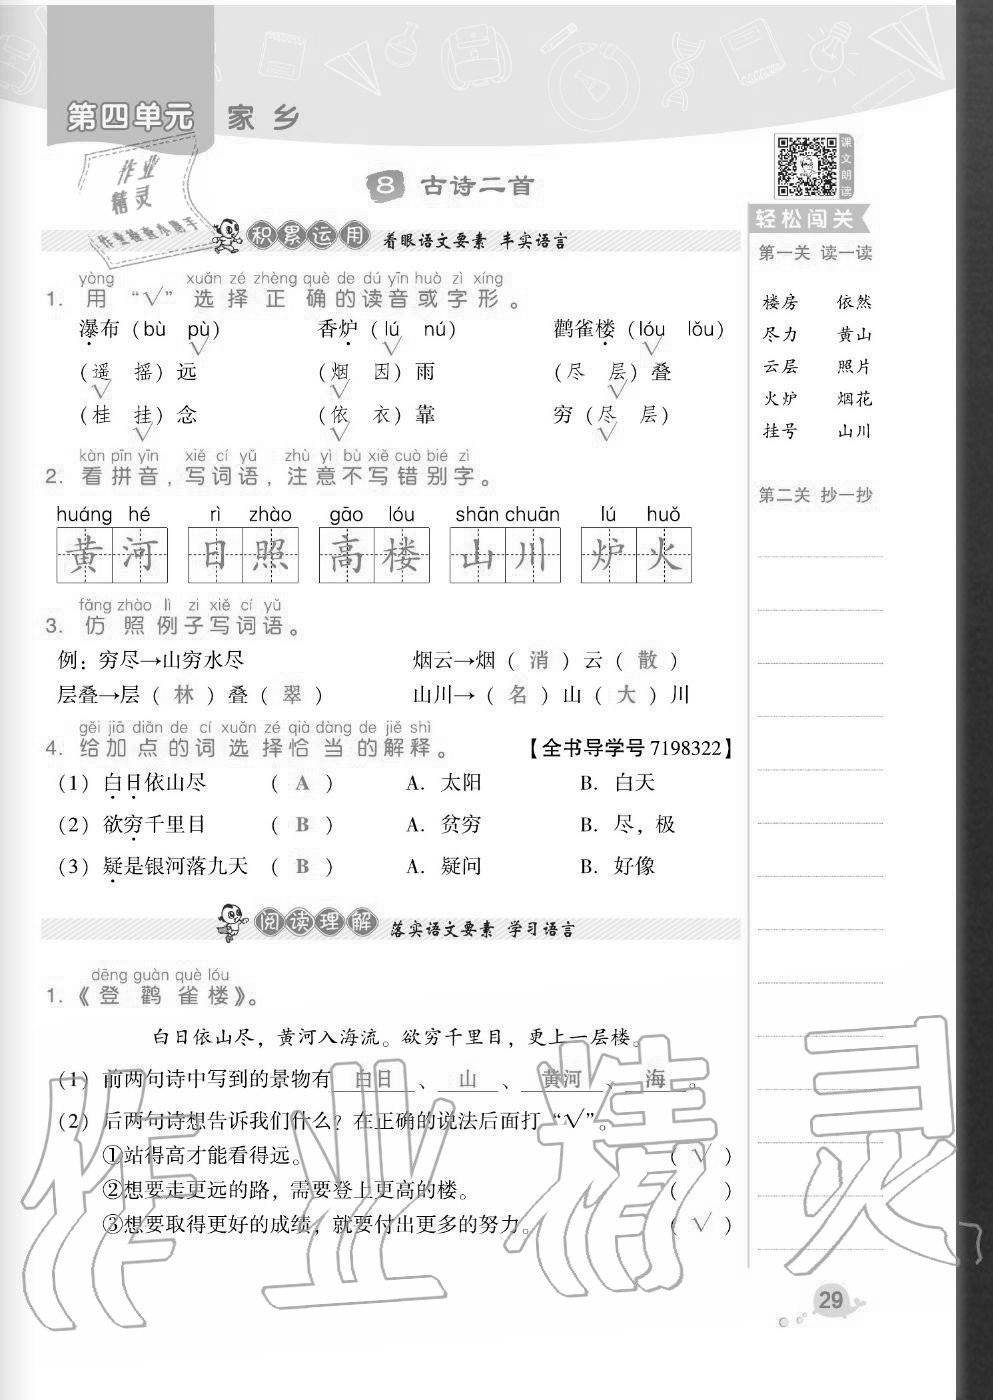 第四单元 家乡
作业精灵
作业检查小助手
课文朗读
8 古诗二首
积累运用 着眼语文要素 丰实语言
yòng xuǎn zé zhèng què de dú yīn huò zì xíng
1. 用“√”选择正确的读音或字形。
瀑布（bù pù） 香炉（lú nú） 鹳雀楼（lóu lǒu）
√ √ √
（遥 摇）远 （烟 因）雨 （尽 层）叠
√ √ √
（桂 挂）念 （依 衣）靠 穷（尽 层）
√ √ √
kàn pīn yīn xiě cí yǔ zhù yì bù xiě cuò bié zì
2. 看拼音，写词语，注意不写错别字。
huáng hé rì zhào gāo lóu shān chuān lú huǒ
黄河 日照 高楼 山川 炉火
fǎng zhào lì zi xiě cí yǔ
3. 仿照例子写词语。
例：穷尽→山穷水尽 烟云→烟（消）云（散）
层叠→层（林）叠（翠） 山川→（名）山（大）川
gěi jiā diǎn de cí xuǎn zé qià dàng de jiě shì
4. 给加点的词选择恰当的解释。 【全书导学号7198322】
（1）白日依山尽 （A） A. 太阳 B. 白天
（2）欲穷千里目 （B） A. 贫穷 B. 尽，极
（3）疑是银河落九天 （B） A. 疑问 B. 好像
阅读理解 落实语文要素 学习语言
dēng guàn què lóu
1.《登鹳雀楼》。
白日依山尽，黄河入海流。欲穷千里目，更上一层楼。
（1）前两句诗中写到的景物有 白日 、 山 、 黄河 、 海 。
（2）后两句诗想告诉我们什么？在正确的说法后面打“√”。
①站得高才能看得远。 （√）
②想要走更远的路，需要登上更高的楼。 （ ）
③想要取得更好的成绩，就要付出更多的努力。 （√）
轻松闯关
第一关 读一读
楼房 依然
尽力 黄山
云层 照片
火炉 烟花
挂号 山川
第二关 抄一抄
作业精灵
29